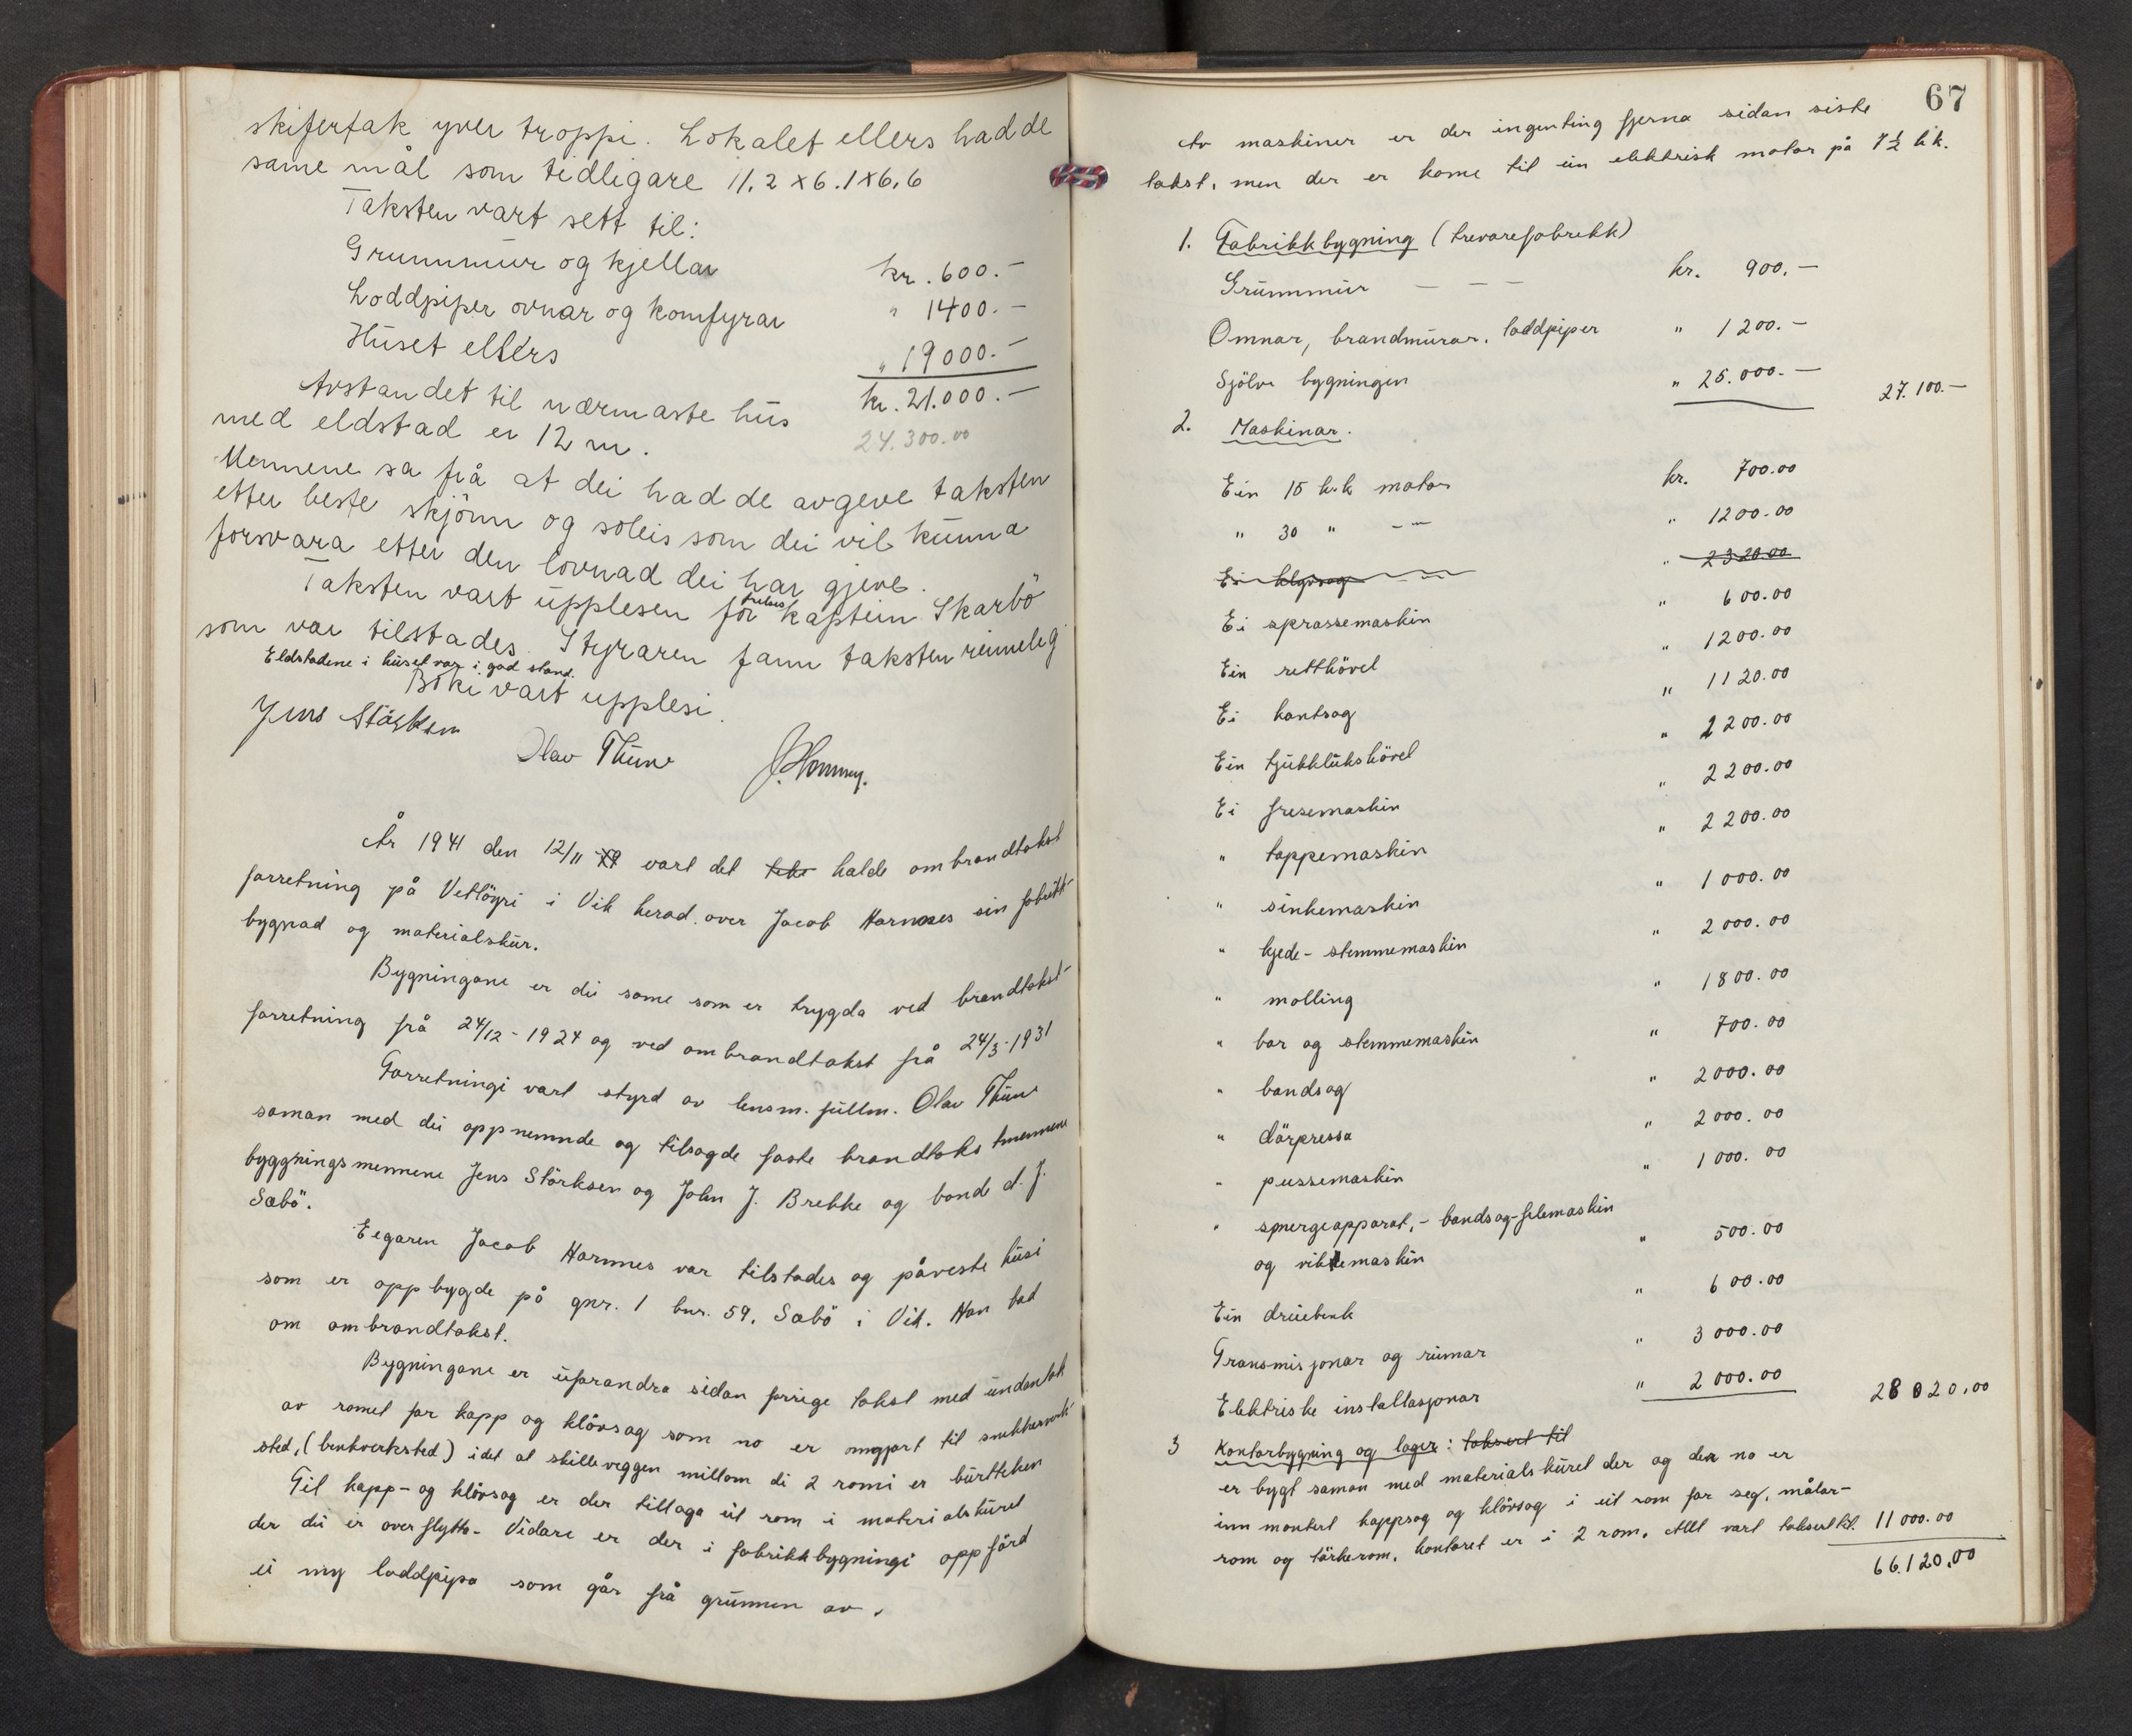 skifertak yver troppi. Lokalet ellers hadde
same mål som tidligare 11.2 x 6.1 x 6.6
Taksten vart sett til:
Grunnmur og kjellar kr. 600.-
Loddpiper ovnar og komfyrar " 1400.-
Huset ellers " 19000.-
kr. 21.000.-
Avstandet til nærmaste hus
med eldstad er 12 m.
24.300.00
Mennene sa frå at dei hadde avgeve taksten
etter beste skjönn og soleis som dei vil kunna
forsvara etter den lovnad dei har gjeve.
Taksten vart upplesen for frelses kaptein Skarbö
som var tilstades. Styraren fann taksten rimeleg
Eldstadene i huset var i god stand.
Boki vart upplesi.
Jens Störksen
Olav Thune
År 1941 den 12/11 vart det halde ombrandtakst
forretning på Vetlöyri i Vik herad over Jacob Hamnes sin fabrikk-
bygnad og materialskur.
Bygningane er dei same som er trygda ved brandtakst-
forretning frå 24/12 - 1924 og ved ombrandtakst frå 24/3-1931
Forretningi vart styrd av lensm. fullm. Olav Thune
saman med dei oppnemnde og tilsagde faste brandtakstmennene
byggningsmennene Jens Störksen og John J. Brekke og bonde d. J.
Sæbö.
Eigaren Jacob Hamnes var tilstades og påveste husi
som er oppbygde på gnr. 1 bnr. 59, Sæbö i Vik. Han bad
om ombrandtakst.
Bygningane er uforandra sidan forrige takst med undantak
av romet for kapp og klövsag som no er omgjort til snikkerverk-
sted, (benkverksted) idet at skilleveggen millom di 2 romi er burtteken
Til kapp- og klövsag er der tillaga eit rom i materialskuret
der dei er overflytta. Vidare er der i fabrikkbygningi oppförd
ei ny loddpipa som går frå grunnen av.
67
Av maskiner er der ingenting fjerna sidan siste
takst, men der er kome til ein elektrisk motor på 7½ h.k.
1. Fabrikkbygning (trevarefabrikk)
Grunnmur - - - kr. 900.-
Omnar, brandmurar, loddpiper " 1200.-
Sjölve bygningen " 25.000.- 27.100.-
2. Maskinar.
Ein 15 h.k motor kr. 700.00
" 30 " -- " 1200.00
Ei klyvsag -- " 2320.00
Ei sprassemaskin " 600.00
Ein retthövel " 1200.00
Ei kantsag " 1120.00
Ein tjukklukshövel " 2200.00
Ei fresemaskin " 2200.00
" tappemaskin " 2200.00
" sinkemaskin " 1000.00
" kjede-stemmemaskin " 2000.00
" molling " 1800.00
" bor og stemmemaskin " 700.00
" bandsag " 2000.00
" dörpressa " 2000.00
" pussemaskin " 1000.00
" smergeapparat, - bandsag-filemaskin
og vikkemaskin " 500.00
Ein dreiebenk " 600.00
Transmisjonar og reimar " 3000.00
Elektriske installasjonar " 2000.00 28020.00
3 Kontorbygning og lager: taksert til
er bygt saman med materialskuret der og den no er
inn montert kappsag og klövsag i eit rom for seg, målar-
rom og törkerom. kontoret er i 2 rom. Alt vart taksert til. 11000.00
66.120.00